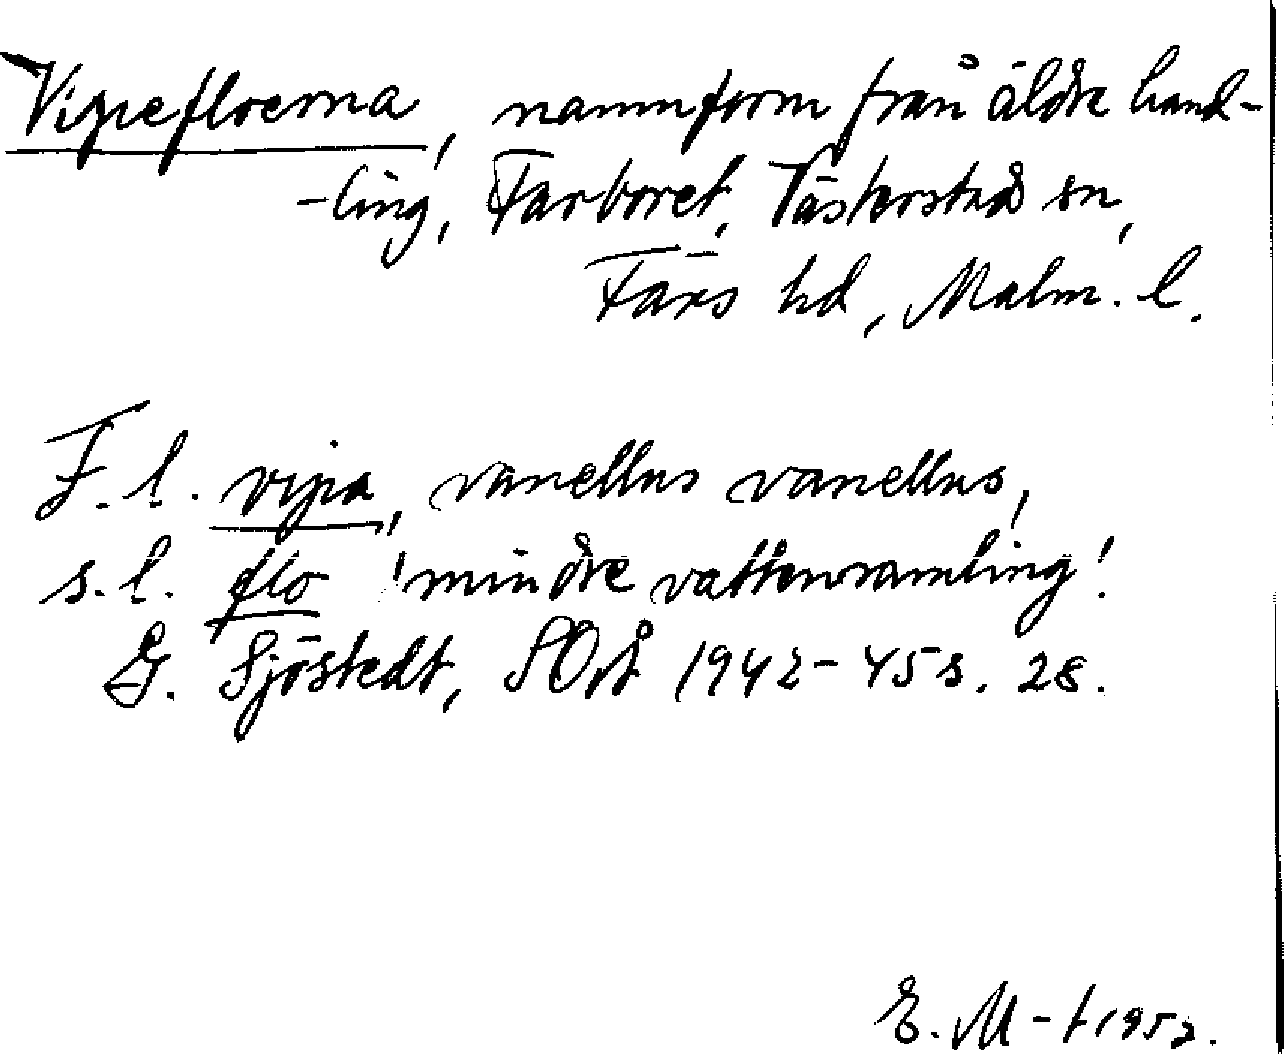 Vipefloerna, namnform från äldre hand-
-ling, Farboret, Västerstads sn,
Färs hd, Malm. l.
F. l. vipa, vanellus vanellus,
s. l. flo 'mindre vattensamling'.
G. Sjöstedt, SOrtÅ 1942-45 s. 28.
E. M-t 1952.